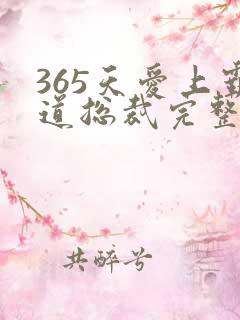 365天爱上霸
道总裁完整
共醉兮